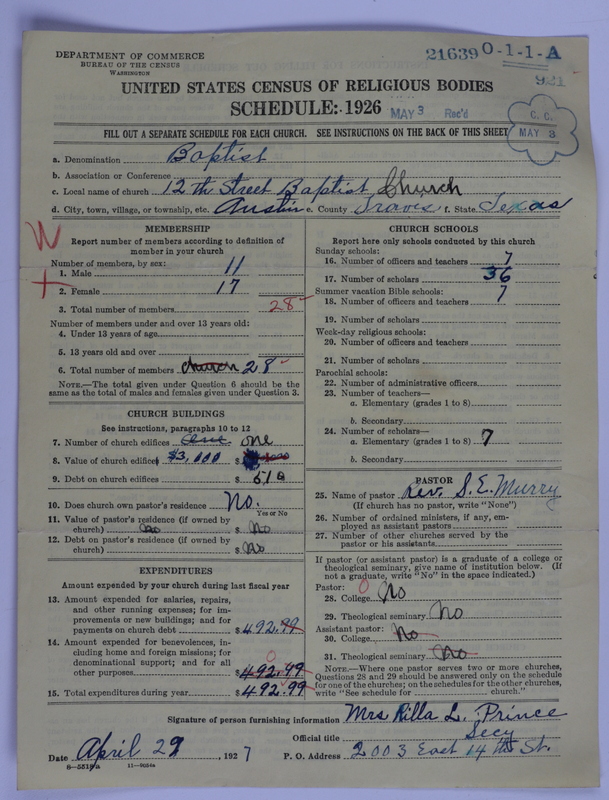 DEPARTMENT OF COMMERCE
BUREAU OF THE CENSUS
WASHINGTON
21639 0-1-1-A
921
UNITED STATES CENSUS OF RELIGIOUS BODIES
SCHEDULE: 1926
MAY 3 Rec'd
C. C.
MAY 3
FILL OUT A SEPARATE SCHEDULE FOR EACH CHURCH. SEE INSTRUCTIONS ON THE BACK OF THIS SHEET
a. Denomination Baptist
b. Association or Conference
c. Local name of church 12th Street Baptist Church
d. City, town, village, or township, etc. Austin e. County Travis f. State Texas
W
+
MEMBERSHIP
Report number of members according to definition of
member in your church
Number of members, by sex:
1. Male 11
2. Female 17
3. Total number of members 28
Number of members under and over 13 years old:
4. Under 13 years of age
5. 13 years old and over
6. Total number of members church 28
NOTE.—The total given under Question 6 should be the
same as the total of males and females given under Question 3.
CHURCH BUILDINGS
See instructions, paragraphs 10 to 12
7. Number of church edifices one
8. Value of church edifices $3,000 $
9. Debt on church edifices $ 510
10. Does church own pastor's residence No.
Yes or No
11. Value of pastor's residence (if owned by
church) no $ No
12. Debt on pastor's residence (if owned by
church) $ No
EXPENDITURES
Amount expended by your church during last fiscal year
13. Amount expended for salaries, repairs,
and other running expenses; for im-
provements or new buildings; and for
payments on church debt $ 492.99
14. Amount expended for benevolences, in-
cluding home and foreign missions; for
denominational support; and for all
other purposes 0 $ 492.99
15. Total expenditures during year $ 492.99
CHURCH SCHOOLS
Report here only schools conducted by this church
Sunday schools:
16. Number of officers and teachers 7
17. Number of scholars 36
Summer vacation Bible schools:
18. Number of officers and teachers 7
19. Number of scholars
Week-day religious schools:
20. Number of officers and teachers
21. Number of scholars
Parochial schools:
22. Number of administrative officers
23. Number of teachers—
a. Elementary (grades 1 to 8)
b. Secondary
24. Number of scholars—
a. Elementary (grades 1 to 8) 7
b. Secondary
PASTOR
25. Name of pastor Rev. S. E. Murry
(If church has no pastor, write "None")
26. Number of ordained ministers, if any, em-
ployed as assistant pastors
27. Number of other churches served by the
pastor or his assistants
If pastor (or assistant pastor) is a graduate of a college or
theological seminary, give name of institution below. (If
not a graduate, write "No" in the space indicated.)
Pastor: 0
28. College No
29. Theological seminary No
Assistant pastor:
30. College No
31. Theological seminary No
NOTE.—Where one pastor serves two or more churches,
Questions 28 and 29 should be answered only on the schedule
for one of the churches; on the schedules for the other churches,
write "See schedule for church."
Signature of person furnishing information Mrs Rilla L. Prince
Official title Secy
Date April 29, 1927 P. O. Address 2003 East 14th St.
11—9024a